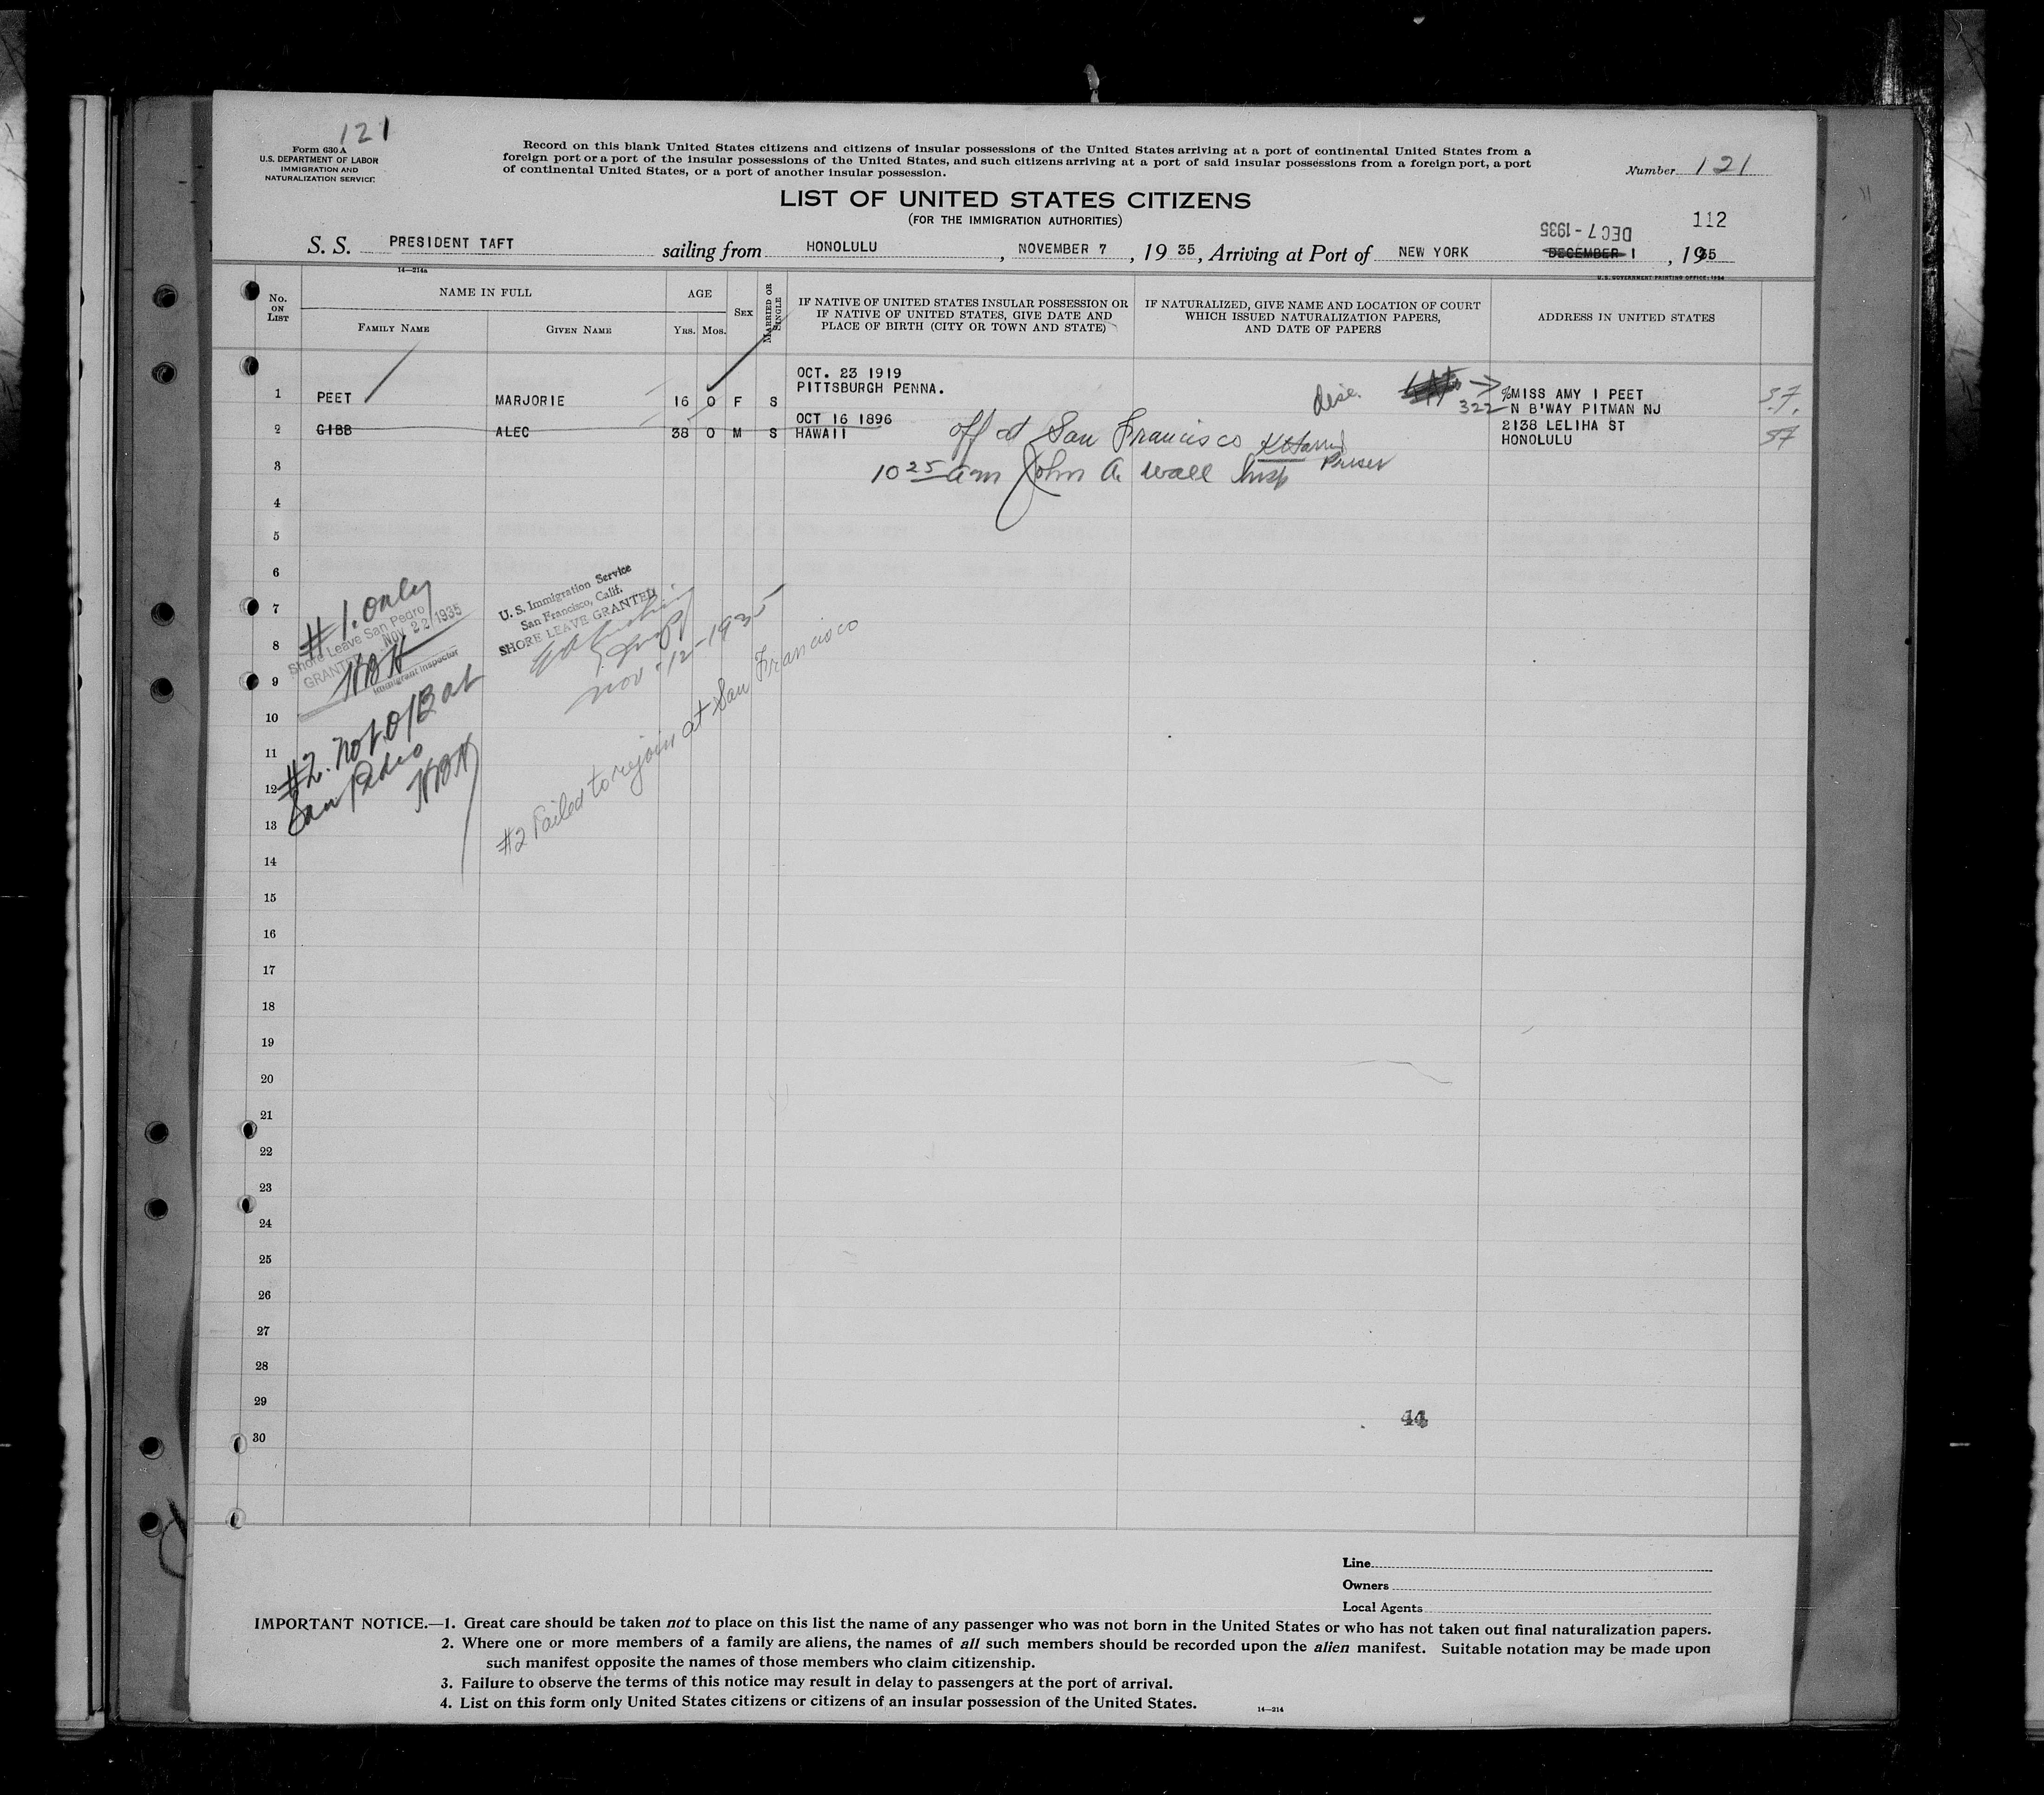 121
Form 630 A
U.S. DEPARTMENT OF LABOR
IMMIGRATION AND
NATURALIZATION SERVICE
Record on this blank United States citizens and citizens of insular possessions of the United States arriving at a port of continental United States from a
foreign port or a port of the insular possessions of the United States, and such citizens arriving at a port of said insular possessions from a foreign port, a port
of continental United States, or a port of another insular possession.
Number 121
LIST OF UNITED STATES CITIZENS
(FOR THE IMMIGRATION AUTHORITIES)
112
DEC 7 - 1935
S. S. PRESIDENT TAFT sailing from HONOLULU, NOVEMBER 7, 1935, Arriving at Port of NEW YORK DECEMBER 1, 1935
14—214a
U. S. GOVERNMENT PRINTING OFFICE: 1934
No. ON LIST
NAME IN FULL
FAMILY NAME
GIVEN NAME
AGE
YRS. MOS.
SEX
MARRIED OR SINGLE
IF NATIVE OF UNITED STATES INSULAR POSSESSION OR
IF NATIVE OF UNITED STATES, GIVE DATE AND
PLACE OF BIRTH (CITY OR TOWN AND STATE)
IF NATURALIZED, GIVE NAME AND LOCATION OF COURT
WHICH ISSUED NATURALIZATION PAPERS,
AND DATE OF PAPERS
ADDRESS IN UNITED STATES
OCT. 23 1919
1 PEET MARJORIE 16 0 F S PITTSBURGH PENNA. %MISS AMY I PEET
322 N B'WAY PITMAN NJ
OCT 16 1896
2 GIBB ALEC 38 0 M S HAWAII 2138 LELIHA ST
HONOLULU
off at San Francisco
10 25 am John A. Wall Insp Purser
3
4
5
6
7
8
9
10
11
12
13
14
15
16
17
18
19
20
21
22
23
24
25
26
27
28
29
30
#1. only
Shore Leave San Pedro
GRANTED Nov 22 1935
Immigrant Inspector
#2. not O/B at
San Pedro
U. S. Immigration Service
San Francisco, Calif.
SHORE LEAVE GRANTED
Nov-12-1935
#2 Failed to rejoin at San Francisco
44
Line
Owners
Local Agents
IMPORTANT NOTICE.—1. Great care should be taken not to place on this list the name of any passenger who was not born in the United States or who has not taken out final naturalization papers.
2. Where one or more members of a family are aliens, the names of all such members should be recorded upon the alien manifest. Suitable notation may be made upon
such manifest opposite the names of those members who claim citizenship.
3. Failure to observe the terms of this notice may result in delay to passengers at the port of arrival.
4. List on this form only United States citizens or citizens of an insular possession of the United States.
14—214